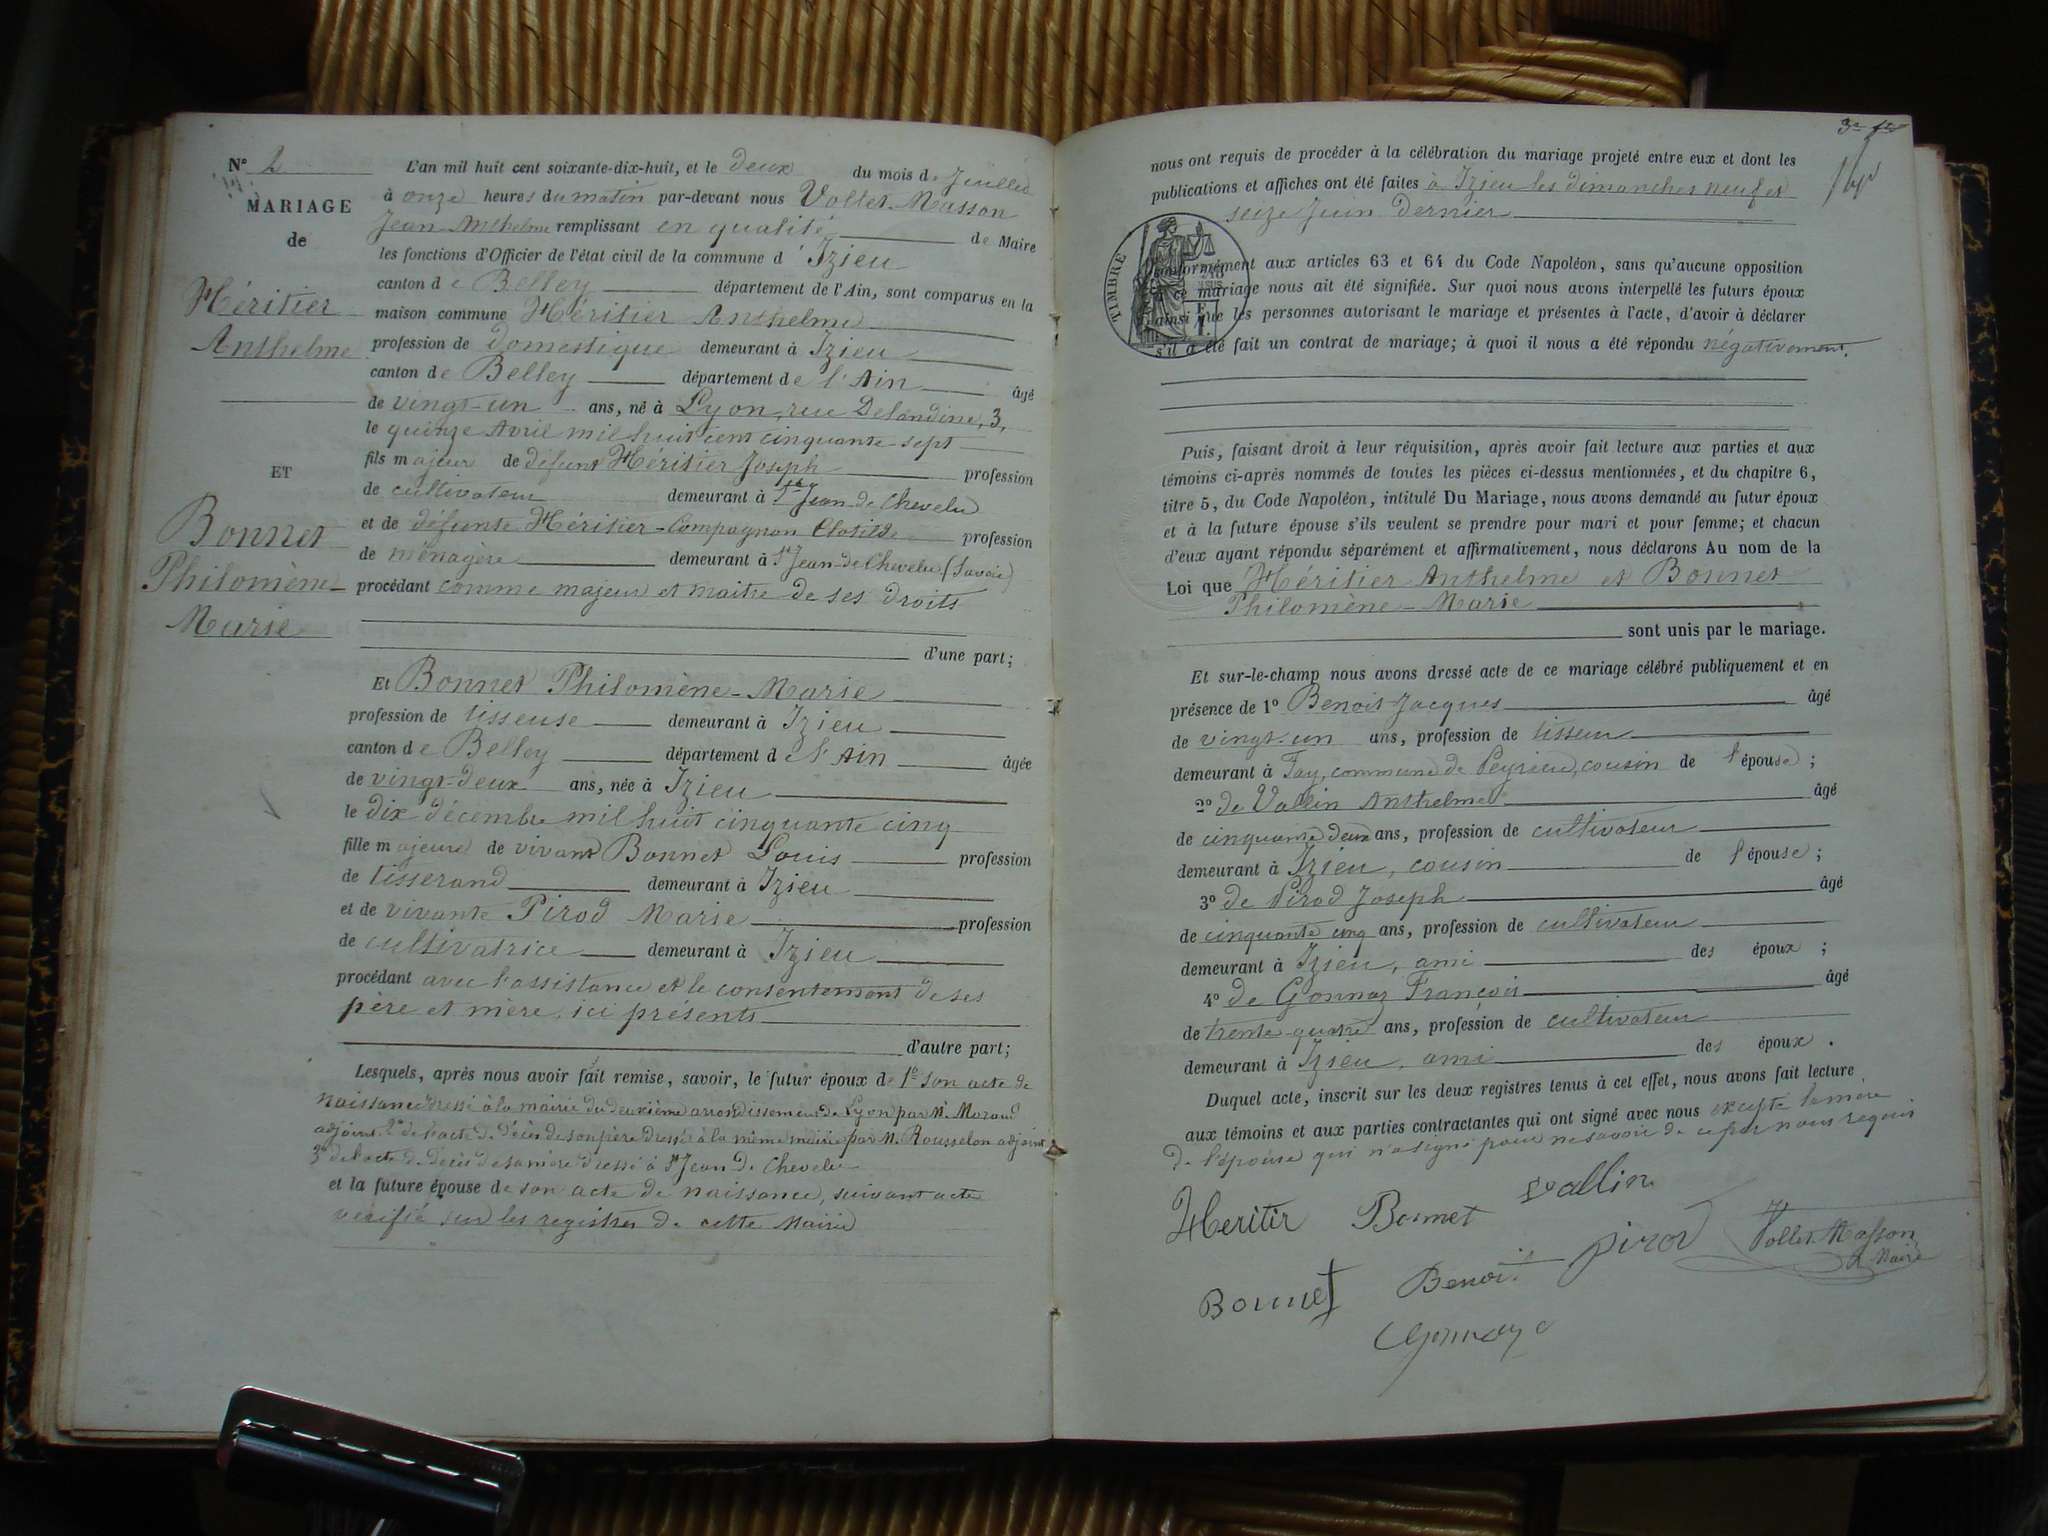 N° 2
MARIAGE
de
Héritier
Anthelme
ET
Bonnet
Philomène-
Marie
L'an mil huit cent soixante-dix-huit, et le deux du mois de Juillet
à onze heures du matin par-devant nous Vollet-Masson
Jean-Anthelme remplissant en qualité de Maire
les fonctions d'Officier de l'état civil de la commune d'Izieu
canton de Belley département de l'Ain, sont comparus en la
maison commune Héritier Anthelme
profession de domestique demeurant à Izieu
canton de Belley département de l'Ain âgé
de vingt-un ans, né à Lyon, rue Delandine, 3,
le quinze Avril mil huit cent cinquante-sept
fils majeur de défunt Héritier Joseph profession
de cultivateur demeurant à St Jean de Chevelu
et de défunte Héritier-Compagnon Clotilde profession
de ménagère demeurant à St Jean-de-Chevelu (Savoie)
procédant comme majeur et maître de ses droits
d'une part;
Et Bonnet Philomène-Marie
profession de tisseuse demeurant à Izieu
canton de Belley département de l'Ain âgée
de vingt-deux ans, née à Izieu
le dix décembre mil huit cinquante cinq
fille majeure de vivant Bonnet Louis profession
de tisserand demeurant à Izieu
et de vivante Pirod Marie profession
de cultivatrice demeurant à Izieu
procédant avec l'assistance et le consentement de ses
père et mère, ici présents
d'autre part;
Lesquels, après nous avoir fait remise, savoir, le futur époux de 1° son acte de
naissance dressé à la mairie du deuxième arrondissement de Lyon par M. Morand
adjoint 2° de l'acte de décès de son père dressé à la même mairie par M. Rousselon adjoint
3° de l'acte de décès de sa mère dressé à St Jean de Chevelu
et la future épouse de son acte de naissance, suivant acte
vérifié sur les registres de cette Mairie
nous ont requis de procéder à la célébration du mariage projeté entre eux et dont les
publications et affiches ont été faites à Izieu les dimanches neuf et
seize Juin dernier
TIMBRE
conformément aux articles 63 et 64 du Code Napoléon, sans qu'aucune opposition
à ce mariage nous ait été signifiée. Sur quoi nous avons interpellé les futurs époux
ainsi que les personnes autorisant le mariage et présentes à l'acte, d'avoir à déclarer
s'il a été fait un contrat de mariage; à quoi il nous a été répondu négativement.
Puis, faisant droit à leur réquisition, après avoir fait lecture aux parties et aux
témoins ci-après nommés de toutes les pièces ci-dessus mentionnées, et du chapitre 6,
titre 5, du Code Napoléon, intitulé Du Mariage, nous avons demandé au futur époux
et à la future épouse s'ils veulent se prendre pour mari et pour femme; et chacun
d'eux ayant répondu séparément et affirmativement, nous déclarons Au nom de la
Loi que Héritier Anthelme et Bonnet
Philomène-Marie
sont unis par le mariage.
Et sur-le-champ nous avons dressé acte de ce mariage célébré publiquement et en
présence de 1° Benoit Jacques âgé
de vingt-un ans, profession de tisseur
demeurant à Fay, commune de Peyrieu, cousin de l'épouse;
2° de Vallin Anthelme âgé
de cinquante deux ans, profession de cultivateur
demeurant à Izieu, cousin de l'épouse;
3° de Pirod Joseph âgé
de cinquante cinq ans, profession de cultivateur
demeurant à Izieu, ami des époux;
4° de Gonnaz François âgé
de trente-quatre ans, profession de cultivateur
demeurant à Izieu, ami des époux.
Duquel acte, inscrit sur les deux registres tenus à cet effet, nous avons fait lecture
aux témoins et aux parties contractantes qui ont signé avec nous excepté la mère
de l'épouse qui n'a signé pour ne savoir de ce par nous requis
Heritir Bonnet Vallin
Bonnet Benoit pirod Vollet-Masson
Maire